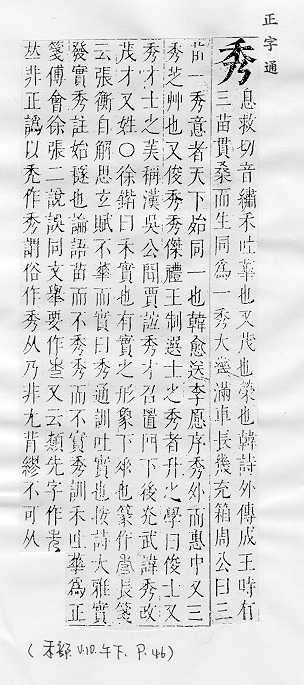 正字通
秀
息救切音繡禾吐華也又茂也榮也韓詩外傳成王時有
三苗貫桑而生同爲一秀大幾滿車長幾充箱周公曰三
苗一秀意者天下始同一也韓愈送李愿序秀外而惠中又三
秀芝艸也又俊秀秀傑禮王制選士之秀者升之學曰俊士又
秀才士之美稱漢吳公聞賈誼秀才召置門下後光武諱秀改
茂才又姓○徐鍇曰禾實也有實之形象下垂也篆作長箋
云張衡自解思玄賦不華而實曰秀通訓吐實也按詩大雅實
發實秀註始穟也論語苗而不秀秀而不實秀訓禾吐華爲正
箋傅會徐張二說誤同文舉要作又云類先字作者
𠀤非正譌以秃作秀謂俗作秀从乃非尤背繆不可从
(禾部. V.10. 午下. P.46)